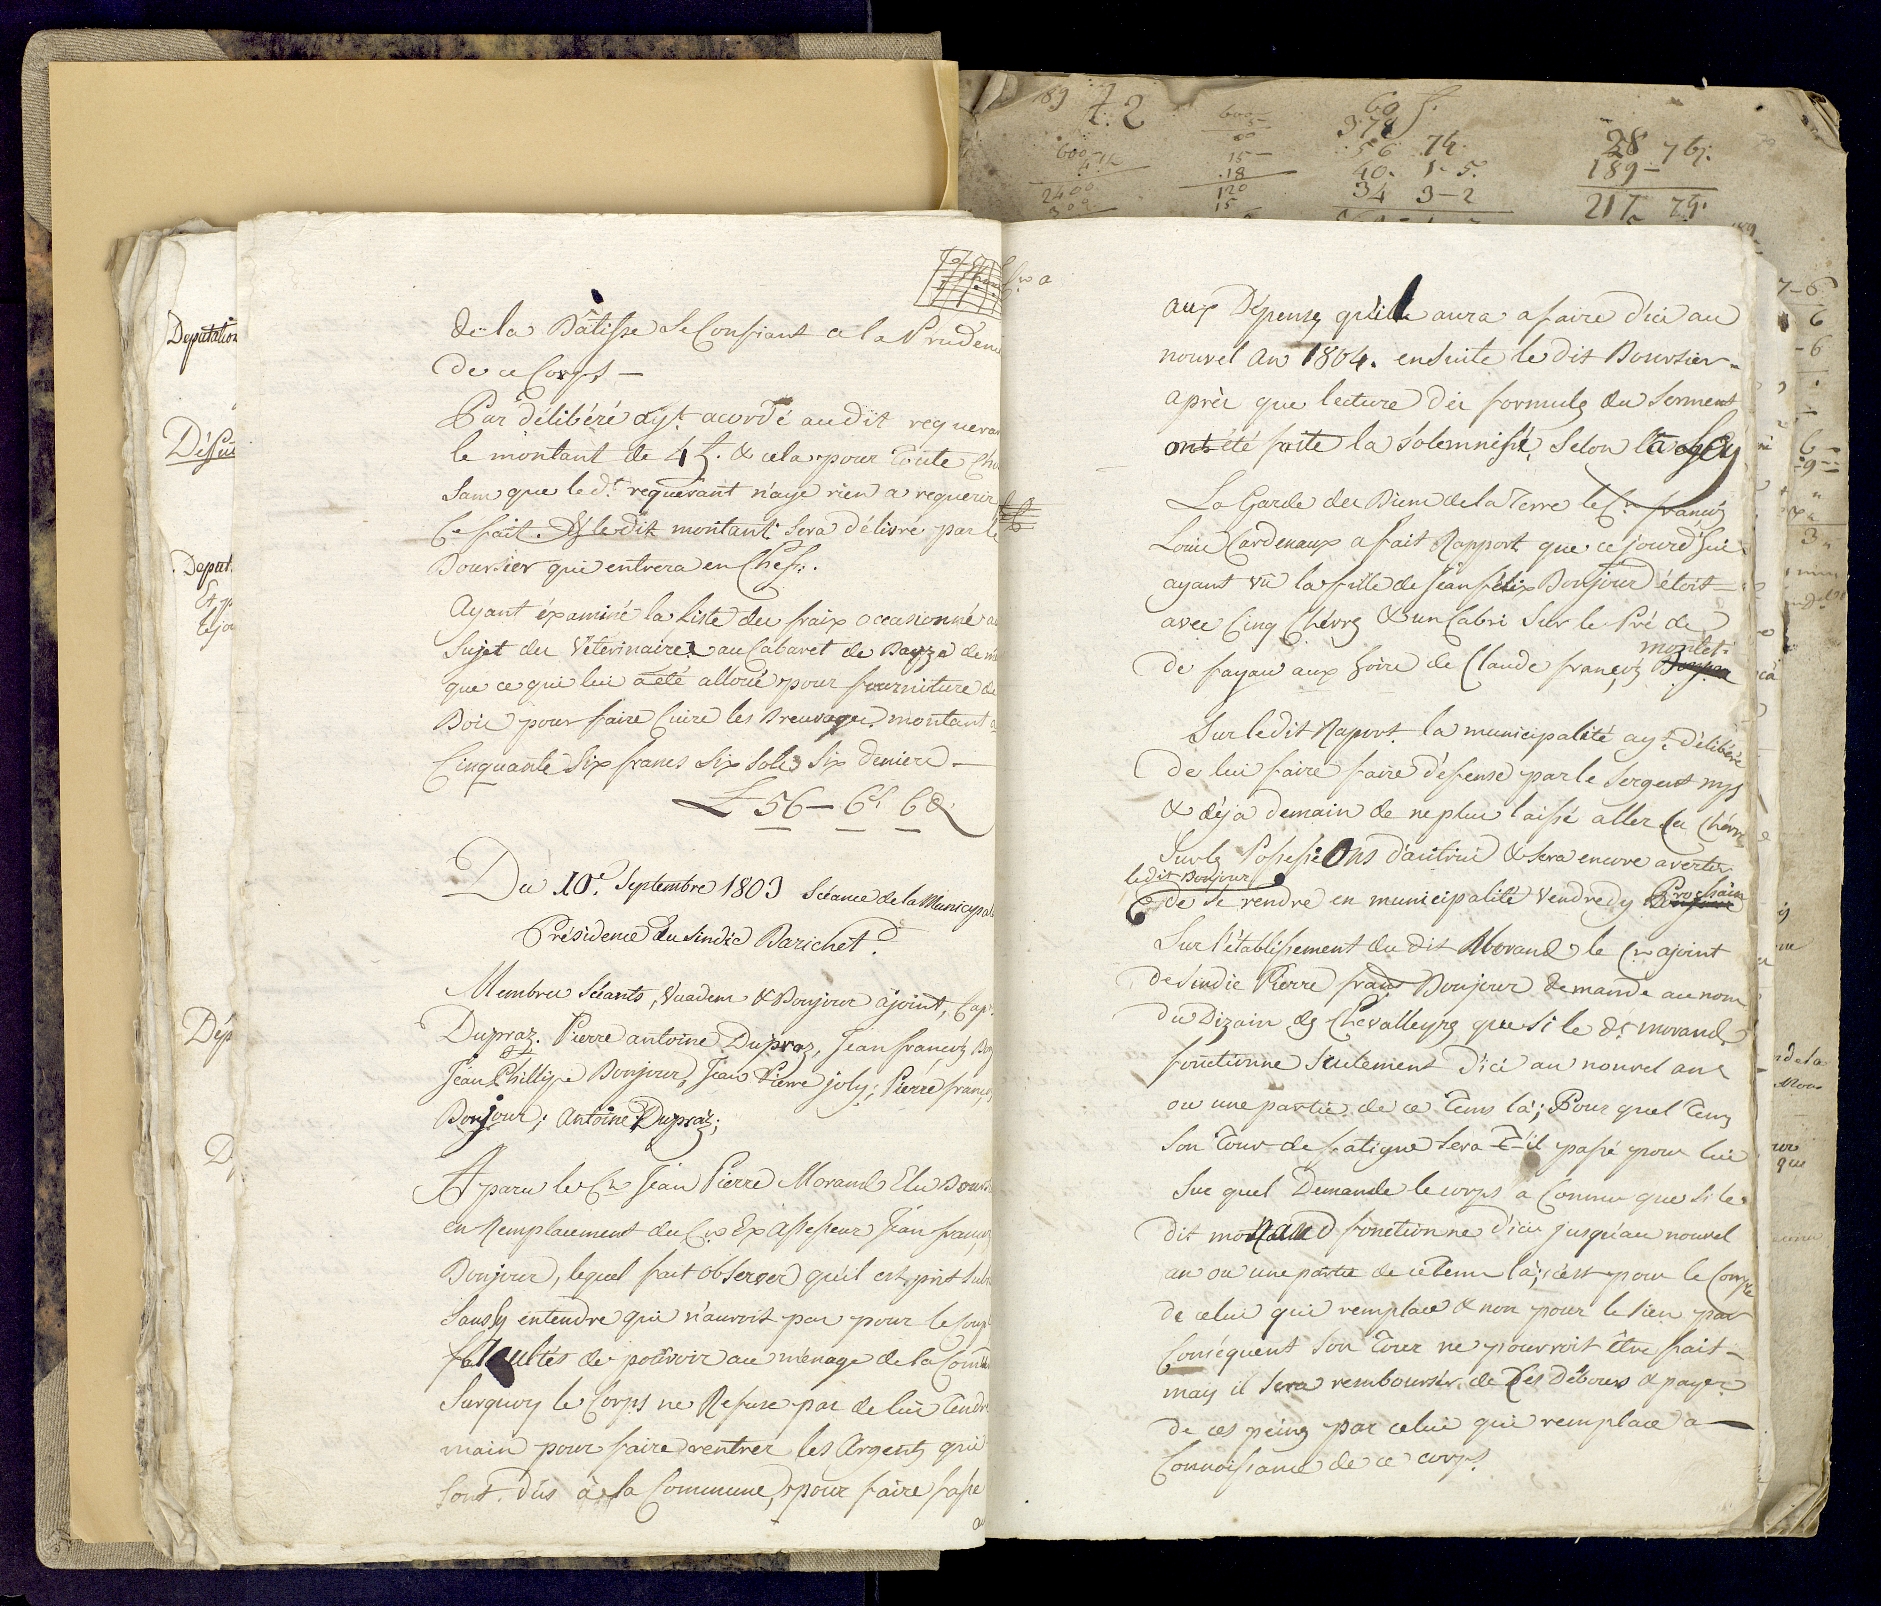 de la Bâtisse Se Confiant a la Prudence
de ce Corps —
Par délibéré ayt. acordé au dit requerant
le montant de 4 L. & cela pour toute Cho
Sans que le dt. requérant n'aye rien a requerir
Ce fait. & le dit montant Sera délivré par le
Boursier qui entrera en Chef.
Ayant éxaminé la Liste des fraix occasionné au
Sujet des Vétérinaires au Cabaret de
que ce qui lui a été alloué pour fourniture de
Bois pour faire Cuire les Breuvages montant a
Cinquante Six francs Six Sols Six deniers —
L 56 — 6 s. 6 d.
Du 10e. Septembre 1803 Séance de la Municipal
Présidence du Sindic Barichet
Membres Séants, Vuadens & Bonjour ajoint, Capt.
Dupraz. Pierre antoine Dupraz, Jean françois Bon
Jean Phillipe Bonjour, Jean Pierre joly; Pierre françois
Bonjour; Antoine Dupraz;
A paru le Cn Jean Pierre Morand Elu Bours
en Remplacement du Cn Ex Assesseur Jean françois
Bonjour, lequel fait observer qu'il est prit
Sans s'y entendre qui n'auroit pas pour le coup
facultés de pourvoir au ménage de la Comm
Surquoy le Corps ne Refuse pas de lui tendre
main pour faire rentrer les Argents qui
Sont dûs à la Commune, pour faire fasse
au
aux Dépenses qu'il aura a faire d'ici au
nouvel an 1804. ensuite le dit Boursier
après que lecture des formules du Serment
ont été faite la solemnisé, Selon l'usage
La Garde des Biens de la Terre le Cn françois
Louis Cardenaux a fait Rapport que ce jourd'hui
ayant vû la fille de Jean félix Bonjour étoit
avec Cinq Chèvres & un Cabri Sur le Pré de
monlet
de fayau aux hoirs de Claude françois
Sur le dit Raport. la municipalité ayt. délibéré
de lui faire faire défense par le Sergent
& déja demain de ne plus laissé aller ses Chévres
Sur les Possessions d'autrui & Sera encore avertir
le dit Bonjour
de Se rendre en municipalité Vendredy Prochain
Sur l'établissement du dit Morand le Cn ajoint
de Sindic Pierre frans Bonjour demande au nom
du Dizain des Chevalleyres que Si le dt. morand
fonctionne Seulement d'ici au nouvel an
ou une partie de ce Tems là; Pour quel Tems
Son Tour de fatigue Sera-t-il passé pour lui
Sur quel Demande le corps a Connu que Si le
dit morand fonctionne d'ici jusqu'au nouvel
an ou une partie de ce tems là; c'est pour le Compte
de celui qui remplace & non pour le sien par
Conséquent Son Tour ne pourroit être fait —
mais il Sera remboursér de Ses Débours & payer
de ces peines par celui qui remplace a —
Connoissance de ce corps.
7. 2
378
56 74.
40. 1-5.
34 3-2
28 76.
189 —
217. 74.
600
15 —
.18
120
15
2400
Deputation